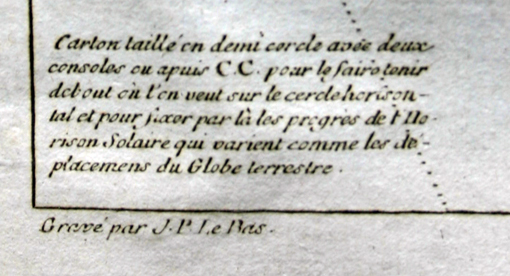 Carton taillé en demi cercle avée deux
consoles ou apuis C.C. pour le faire tenir
debout où l'on veut sur le cercle horison-
tal et pour fixer par là les progrès de l'Ho-
rison Solaire qui varient comme les dé-
placemens du Globe terrestre.
Gravé par J. P. Le Bas.